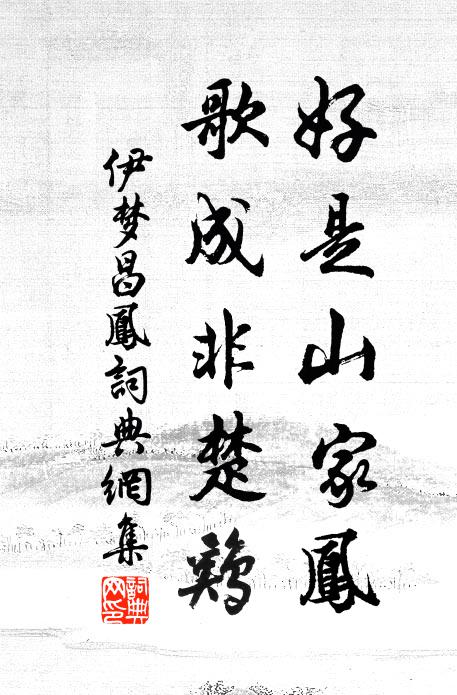 好是山家鳳
歌成非楚鷄
伊梦昌鳳詞典網集
詞典
网印